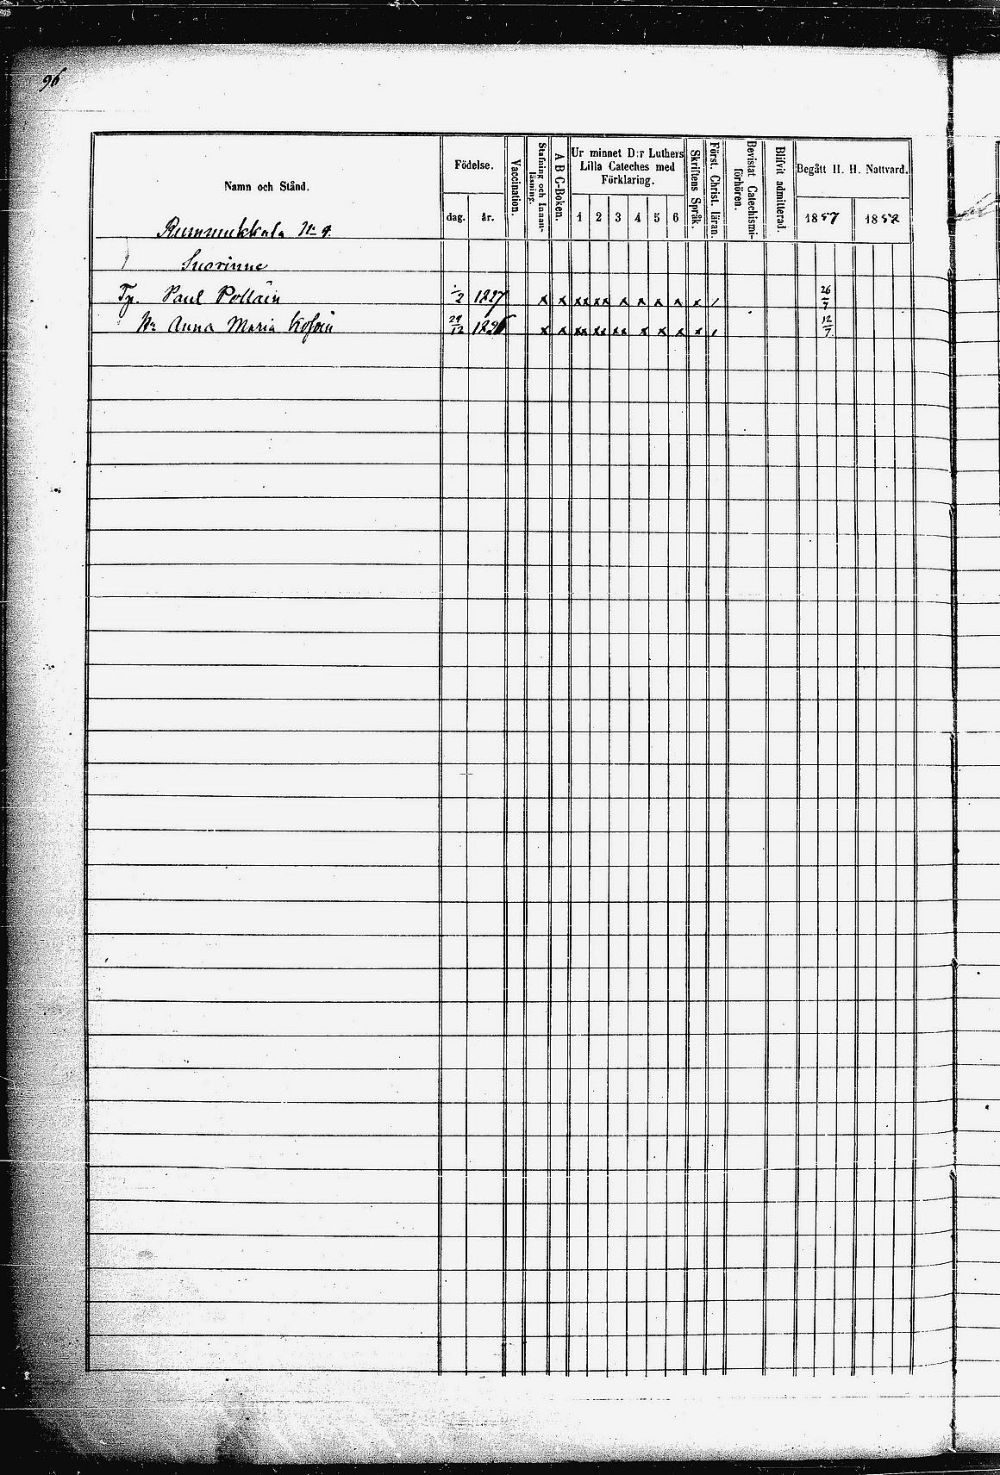 96
Namn och Stånd.
Födelse.
dag. år.
Vaccination.
Stafning och Innanläsning.
A B C-Boken.
Ur minnet D:r Luthers
Lilla Cateches med
Förklaring.
1 2 3 4 5 6
Skriftens Språk.
Först. Christ. läran.
Bevistat Catechismiförhören.
Blifvit admitterad.
Begått H. H. Nattvard.
1857 1858
Rummukkala No 9.
Suorinne
Tp. Paul Pollain 1/2 1827 x x xx xx x x x x x / 26/7
Hu Anna Maria 29/12 x x xx xx xx x x x x / 12/7